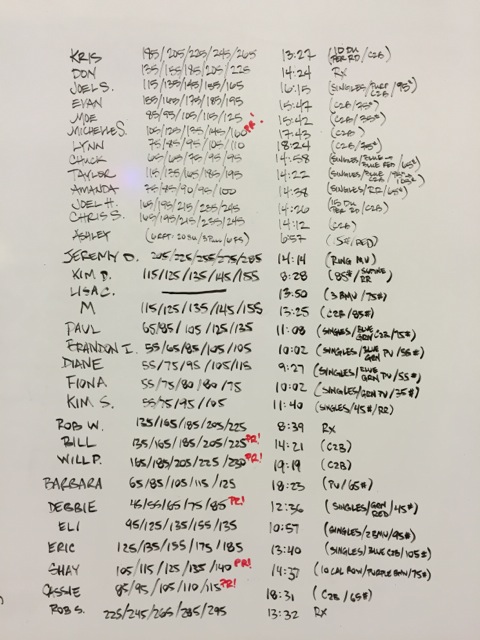 KRIS 185/205/225/245/265 13:27 (10 DU PER RD/C2B)
DON 135/155/185/205/225 14:24 RX
JOEL S. 115/135/145/155/165 16:15 (SINGLES/PURP C2B/95#)
EVAN 155/165/175/185/195 15:47 (C2B/75#)
MOE 85/95/105/115/125 PR! 15:42 (C2B/55#)
MICHELLE S. 105/125/135/145/160 17:43 (C2B)
LYNN 75/85/95/105/110 18:24 (C2B/75#)
CHUCK 65/65/75/95/95 14:58 (SINGLES/BLUE RED/65#)
TAYLOR 115/135/165/185/195 14:22 (SINGLES/BLUE C2B/105#)
AMANDA 75/85/90/95/100 14:38 (SINGLES/RR/65#)
JOEL H. 165/195/215/235/245 14:26 (15 DU PER RD/C2B)
CHRIS S. 165/195/215/235/245 14:12 (C2B)
ASHLEY 6:57
JEREMY D. 205/225/255/275/285 14:14 (RING MU)
KIM D. 115/125/135/145/155 8:28 (85#/SUPINE RR)
LISA C. 13:50 (3 BMU/75#)
M 115/125/135/145/155 13:25 (C2B/85#)
PAUL 65/85/105/125/135 11:08 (SINGLES/BLUE GRN C2B/75#)
BRANDON I. 55/65/85/105/105 10:02 (SINGLES/BLUE GRN PU/55#)
DIANE 55/75/95/105/115 9:27 (SINGLES/BLUE GRN PU/55#)
FIONA 55/75/80/80/75 10:02 (SINGLES/GRN PU/35#)
KIM S. 55/75/95/105 11:40 (SINGLES/45#/RR)
ROB W. 135/165/185/205/225 8:39 RX
BILL 135/165/185/205/225 PR! 14:21 (C2B)
WILL P. 165/185/205/225/230 PR! 19:19 (C2B)
BARBARA 65/85/105/115/125 18:23 (PU/65#)
DEBBIE 45/55/65/75/85 PR! 12:36 (SINGLES/GRN RED/45#)
ELI 95/125/135/155/135 10:57 (SINGLES/2BMU/95#)
ERIC 125/135/155/175/185 13:40 (SINGLES/BLUE C2B/105#)
SHAY 105/115/125/135/140 PR! 14:37 (10 CAL ROW/PURPLE BMU/75#)
CASSIE 85/95/105/110/115 PR! 18:31 (C2B/65#)
ROB S. 225/245/265/285/295 13:32 RX